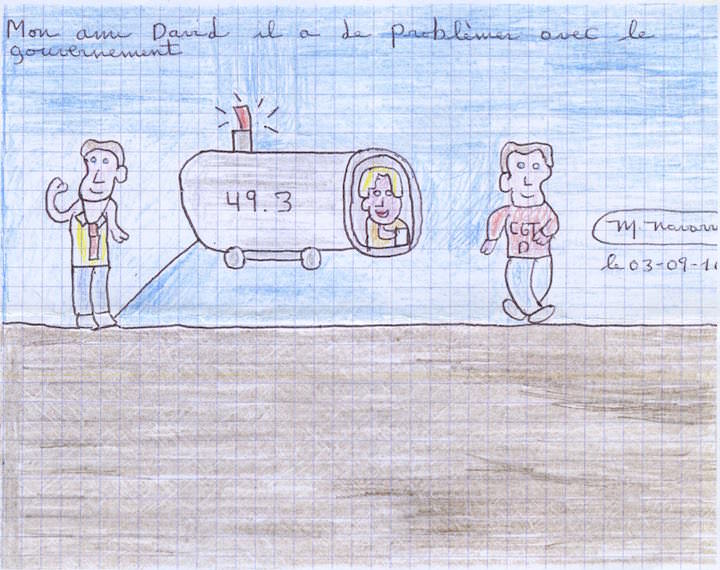 Mon ami David il a de problèmes avec le
gouvernement
49.3
CGT
D
M. Navarr
le 03-09-16